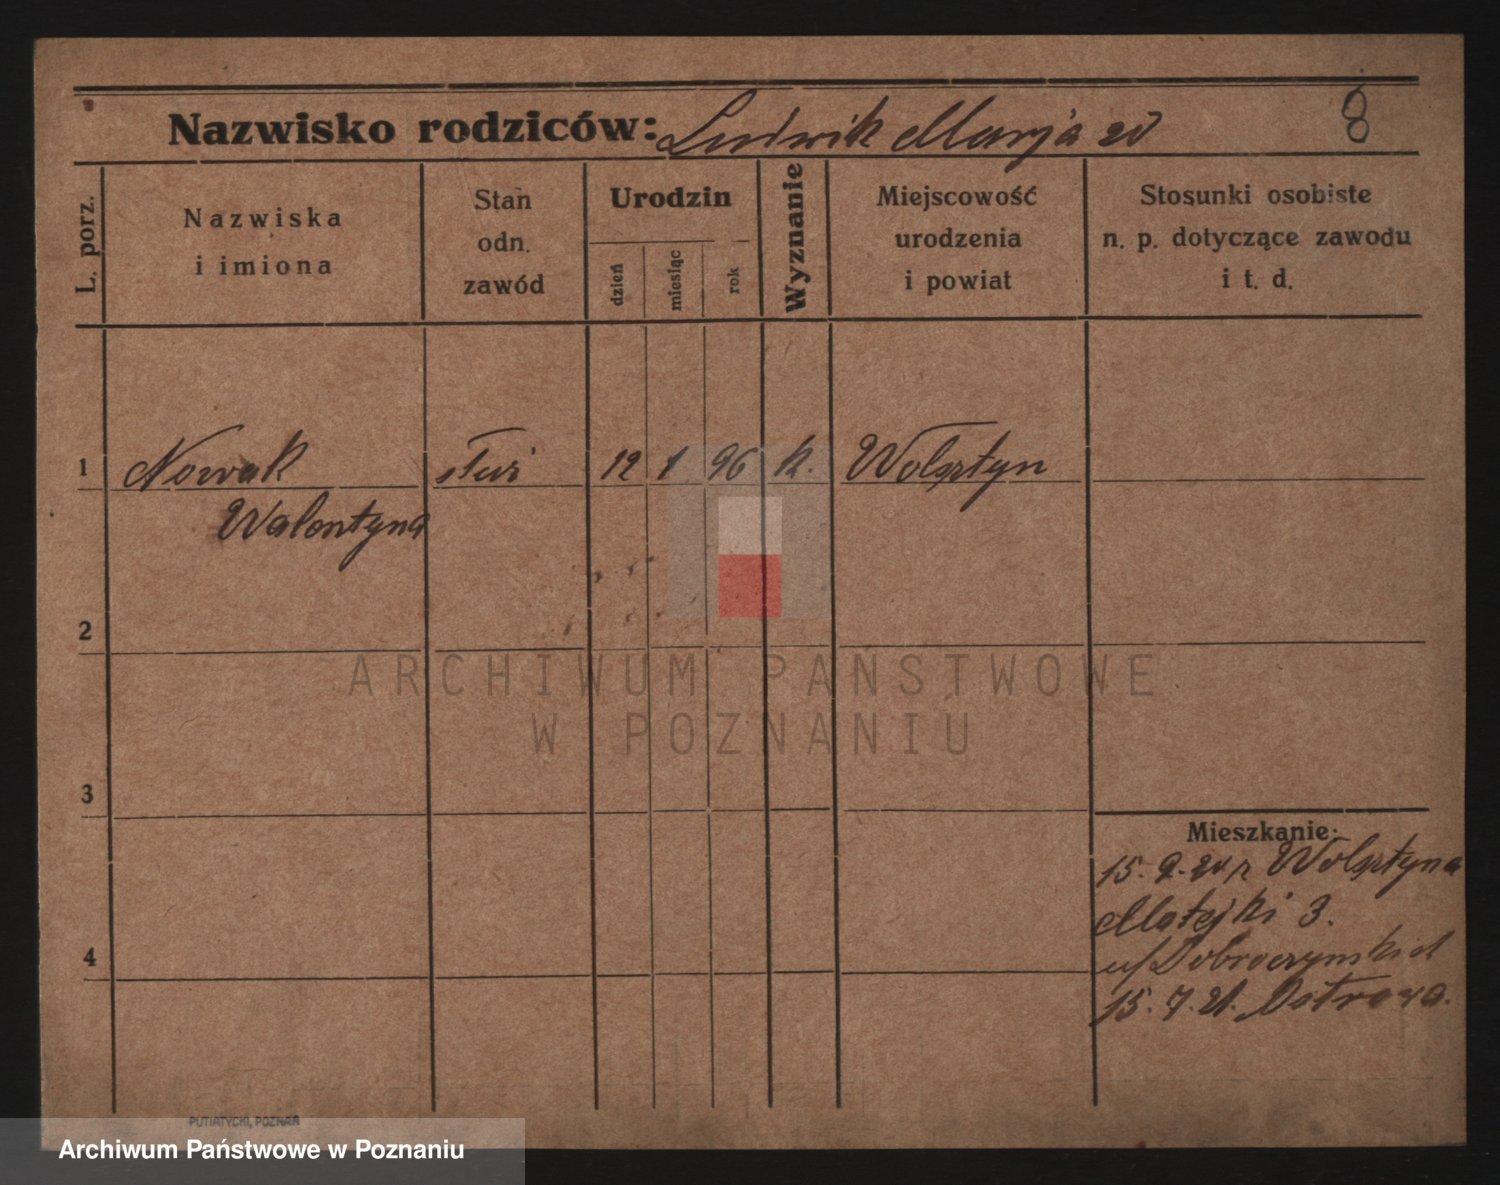 Nazwisko rodziców: Ludwik Marja zd
8
L. porz.
Nazwiska
i imiona
Stan
odn.
zawód
Urodzin
dzień
miesiąc
rok
Wyznanie
Miejscowość
urodzenia
i powiat
Stosunki osobiste
n. p. dotyczące zawodu
i t. d.
1 Nowak służ 12 1 96 k. Wolsztyn
Walentyna
2
ARCHIWUM PAŃSTWOWE
W POZNANIU
3
Mieszkanie:
15. 9. 20 z Wolsztyna
Matejki 3.
u/Dobroczyńskich
4
15. 7. 21. Ostrowa.
PUTIATYCKI, POZNAŃ
Archiwum Państwowe w Poznaniu